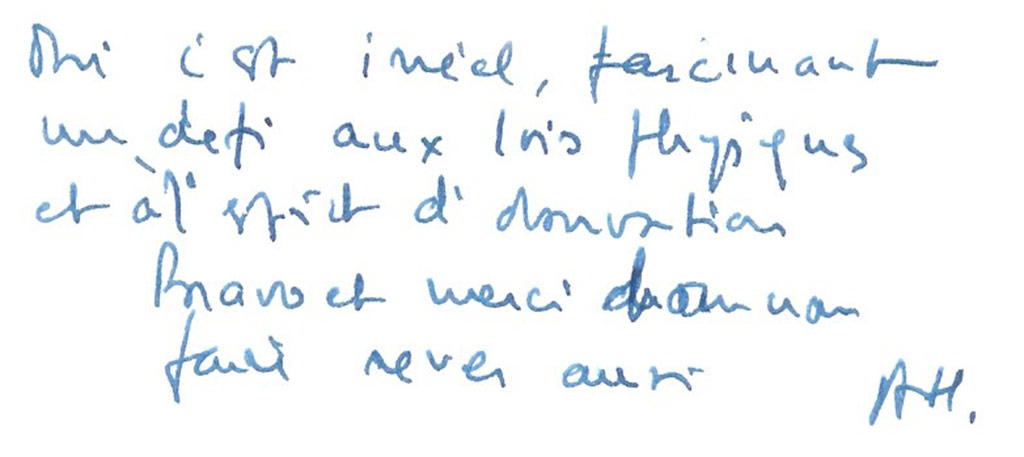 Oui c'est irréel, fascinant
un défi aux lois physiques
et à l'esprit d'observation
Bravo et merci de nous
faire rêver aussi
A.H.